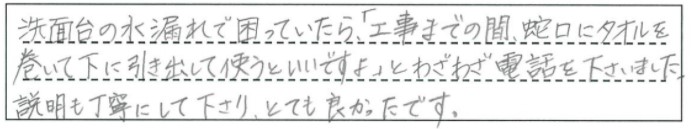 洗面台の水漏れで困っていたら、「工事までの間、蛇口にタオルを
巻いて下に引き出して使うといいですよ」とわざわざ電話を下さいました。
説明も丁寧にして下さり、とても良かったです。